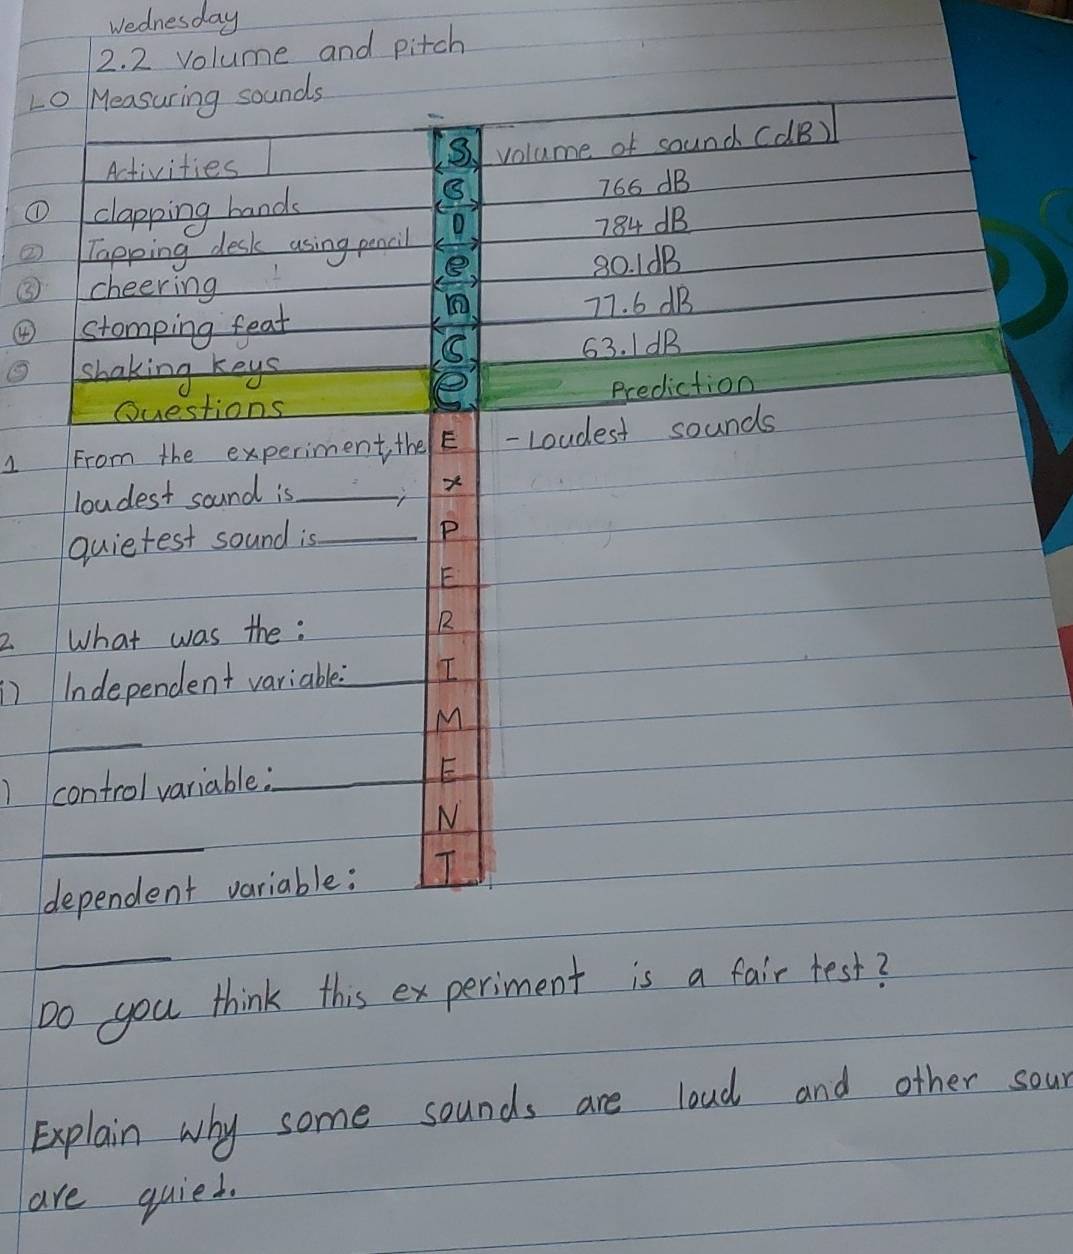 Wednesday
2.2 Volume and pitch
LO Measuring sounds
Activities Volume of sound (dB)
① clapping hands 766 dB
② Tapping desk using pencil 784 dB
③ cheering 80.1dB
④ stomping feat 77.6 dB
⑤ shaking keys 63.1dB
Science
Questions Prediction
EXPERIMENT
1 From the experiment, the - Loudest sounds
loudest sound is ______;
quietest sound is ______
2. What was the:
i) Independent variable: ______
______
) control variable: ______
______
dependent variable:
______
Do you think this experiment is a fair test?
Explain why some sounds are loud and other soun
are quiet.